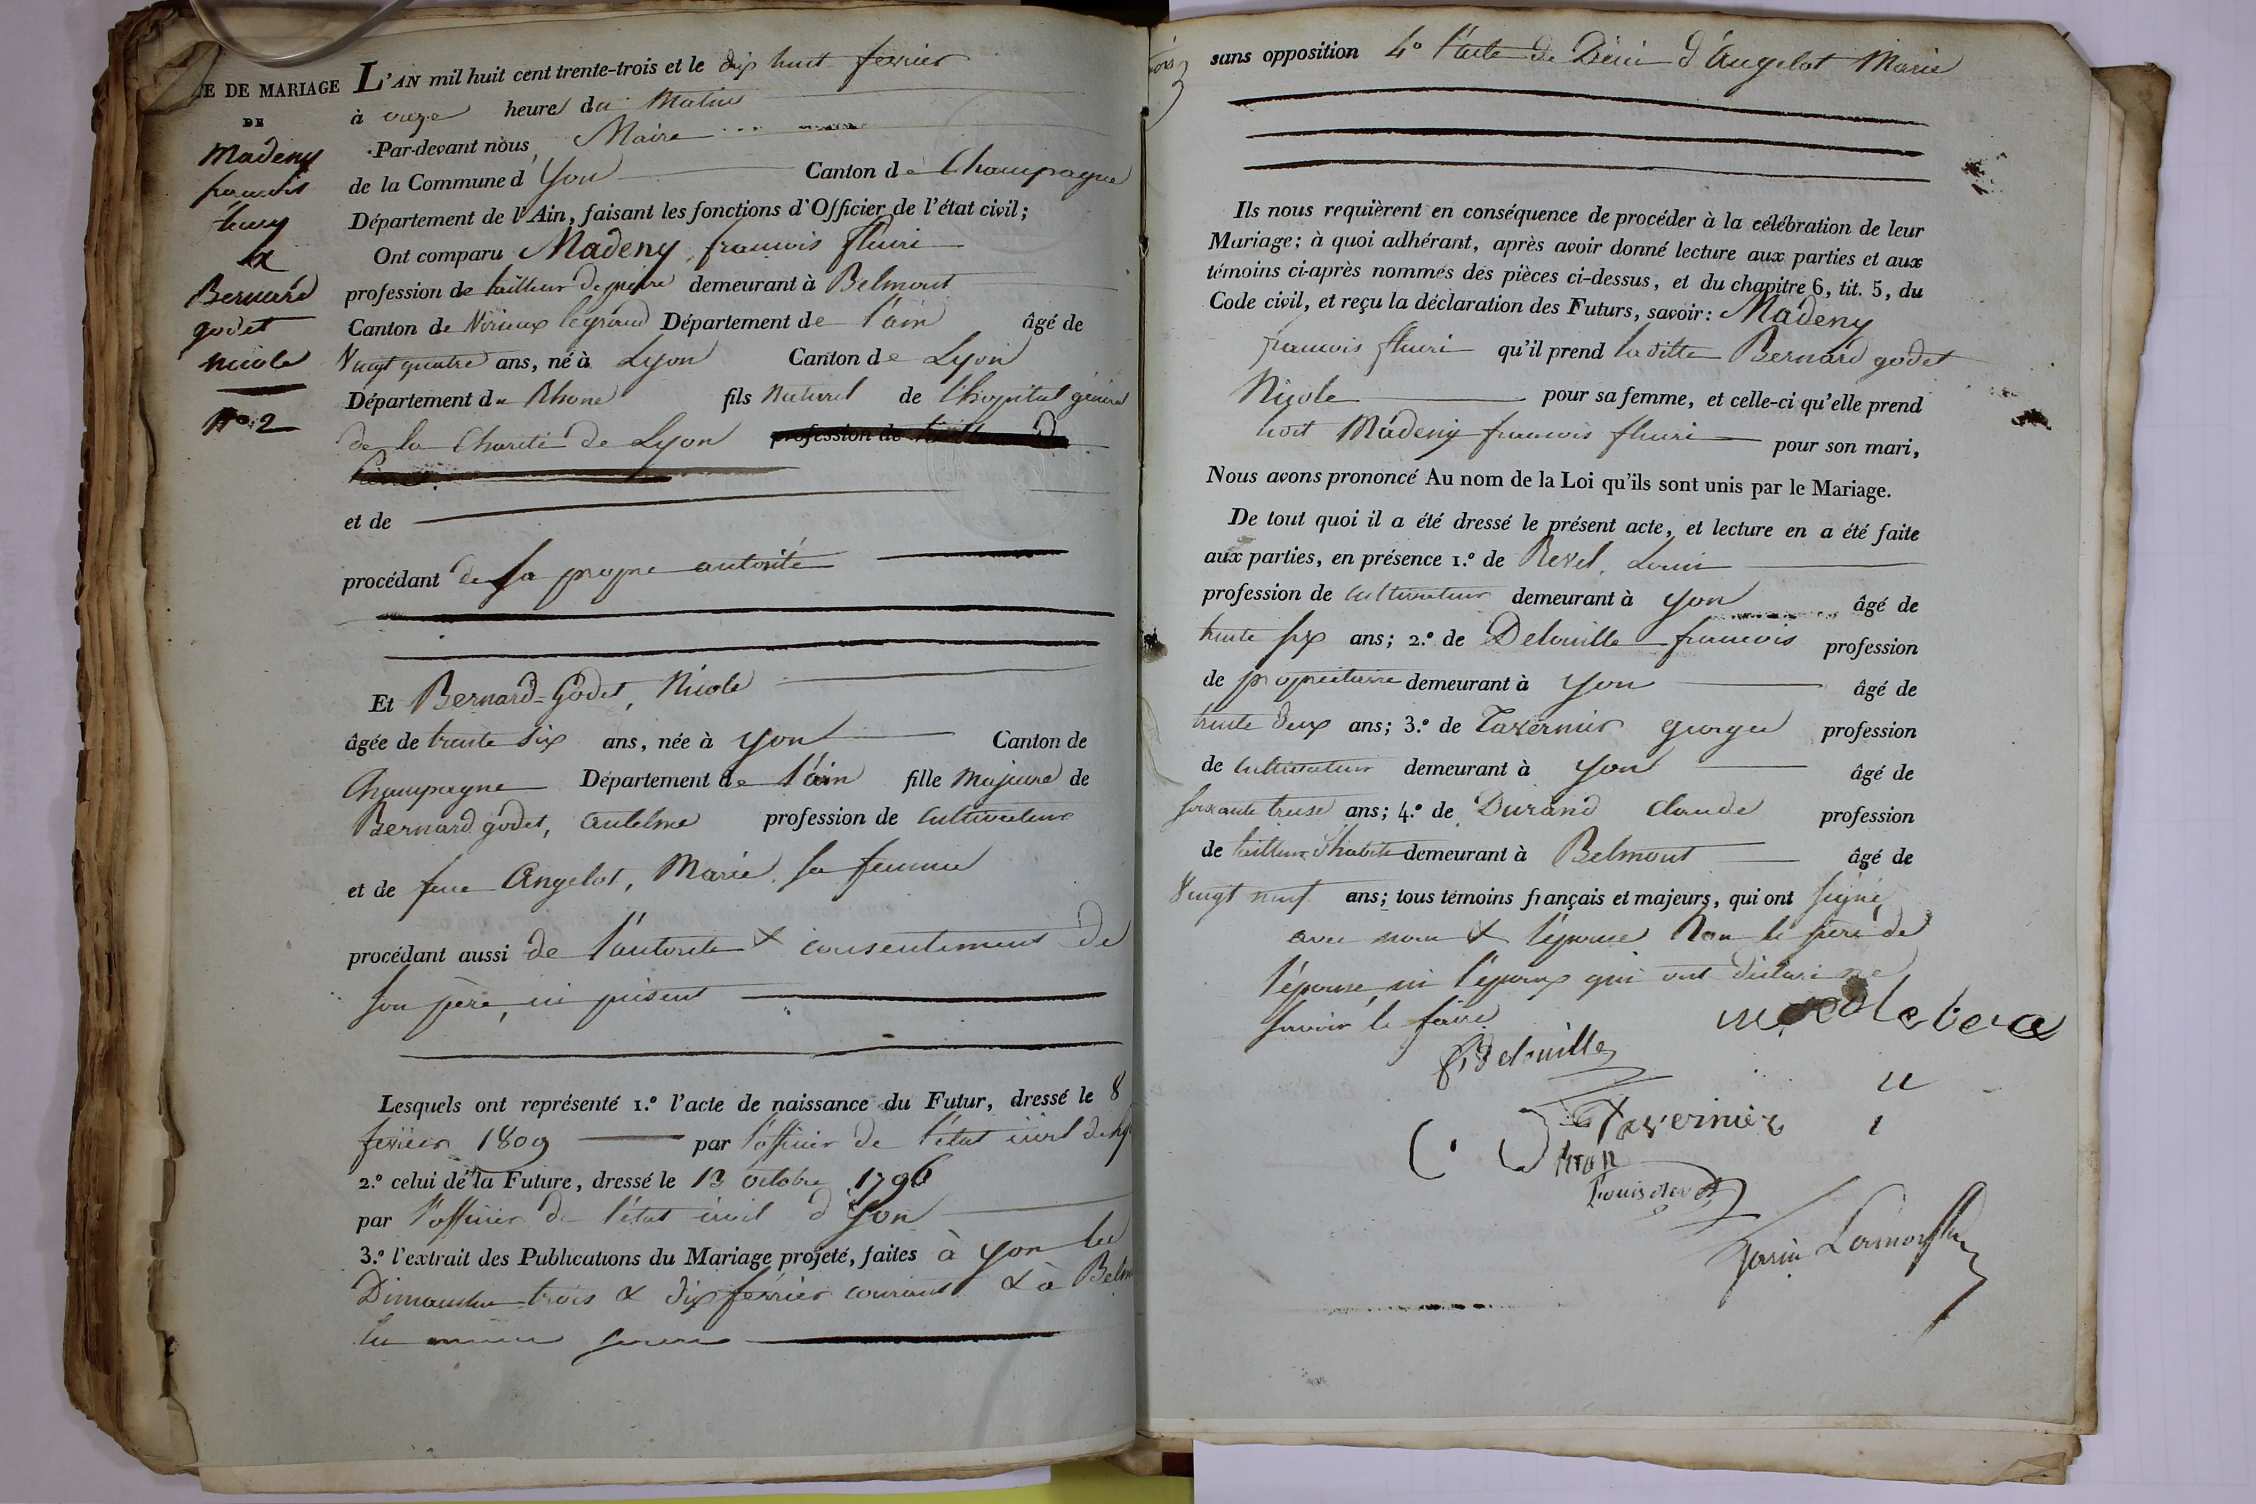 E DE MARIAGE
DE
Madeny
francois
fleury
&
Bernard
godet
nicole
N° 2
L'AN mil huit cent trente-trois et le dix huit fevrier
à onze heures du Matin
Par-devant nous Maire
de la Commune d'Yon Canton de Champagne
Département de l'Ain, faisant les fonctions d'Officier de l'état civil;
Ont comparu Madeny francois fleuri
profession de tailleur de pierre demeurant à Belmont
Canton de Virieux legrand Département de l'ain âgé de
Vingt quatre ans, né à Lyon Canton de Lyon
Département du Rhone fils naturel de l'hopital général
de la Charité de Lyon profession de
et de
procédant de sa propre autorité
Et Bernard-Godet, Nicole
âgée de trente six ans, née à Yon Canton de
Champagne Département de l'ain fille majeure de
Bernard godet, antelme profession de cultivateur
et de feue Angelot, Marie sa femme
procédant aussi de l'autorité & consentement de
son père, ici présent
Lesquels ont représenté 1.° l'acte de naissance du Futur, dressé le 8
fevrier 1809 par l'officier de l'état civil de
2.° celui de la Future, dressé le 13 octobre 1796
par l'officier de l'état civil d'yon
3.° l'extrait des Publications du Mariage projeté, faites à yon les
Dimanches trois & dix février courant & à Belm
les mêmes jours
sans opposition 4° l'acte de Décès d'Angelot Marie
Ils nous requièrent en conséquence de procéder à la célébration de leur
Mariage; à quoi adhérant, après avoir donné lecture aux parties et aux
témoins ci-après nommés des pièces ci-dessus, et du chapitre 6, tit. 5, du
Code civil, et reçu la déclaration des Futurs, savoir: Madeny
francois fleuri qu'il prend laditte Bernard godet
Nicole pour sa femme, et celle-ci qu'elle prend
ledit Madeny francois fleuri pour son mari,
Nous avons prononcé Au nom de la Loi qu'ils sont unis par le Mariage.
De tout quoi il a été dressé le présent acte, et lecture en a été faite
aux parties, en présence 1.° de Revel, Louis
profession de cultivateur demeurant à yon âgé de
trente six ans; 2.° de Delouille francois profession
de propriétaire demeurant à yon âgé de
trente deux ans; 3.° de Tavernier george profession
de cultivateur demeurant à yon âgé de
soixante treise ans; 4.° de Durand Claude profession
de tailleur d'habits demeurant à Belmont âgé de
Vingt neuf ans; tous témoins français et majeurs, qui ont signé
avec nous & l'épouse Non le père de
l'épouse, ni l'époux qui ont déclaré ne
savoir le faire
Delouille
Tavernier
Louis Revel